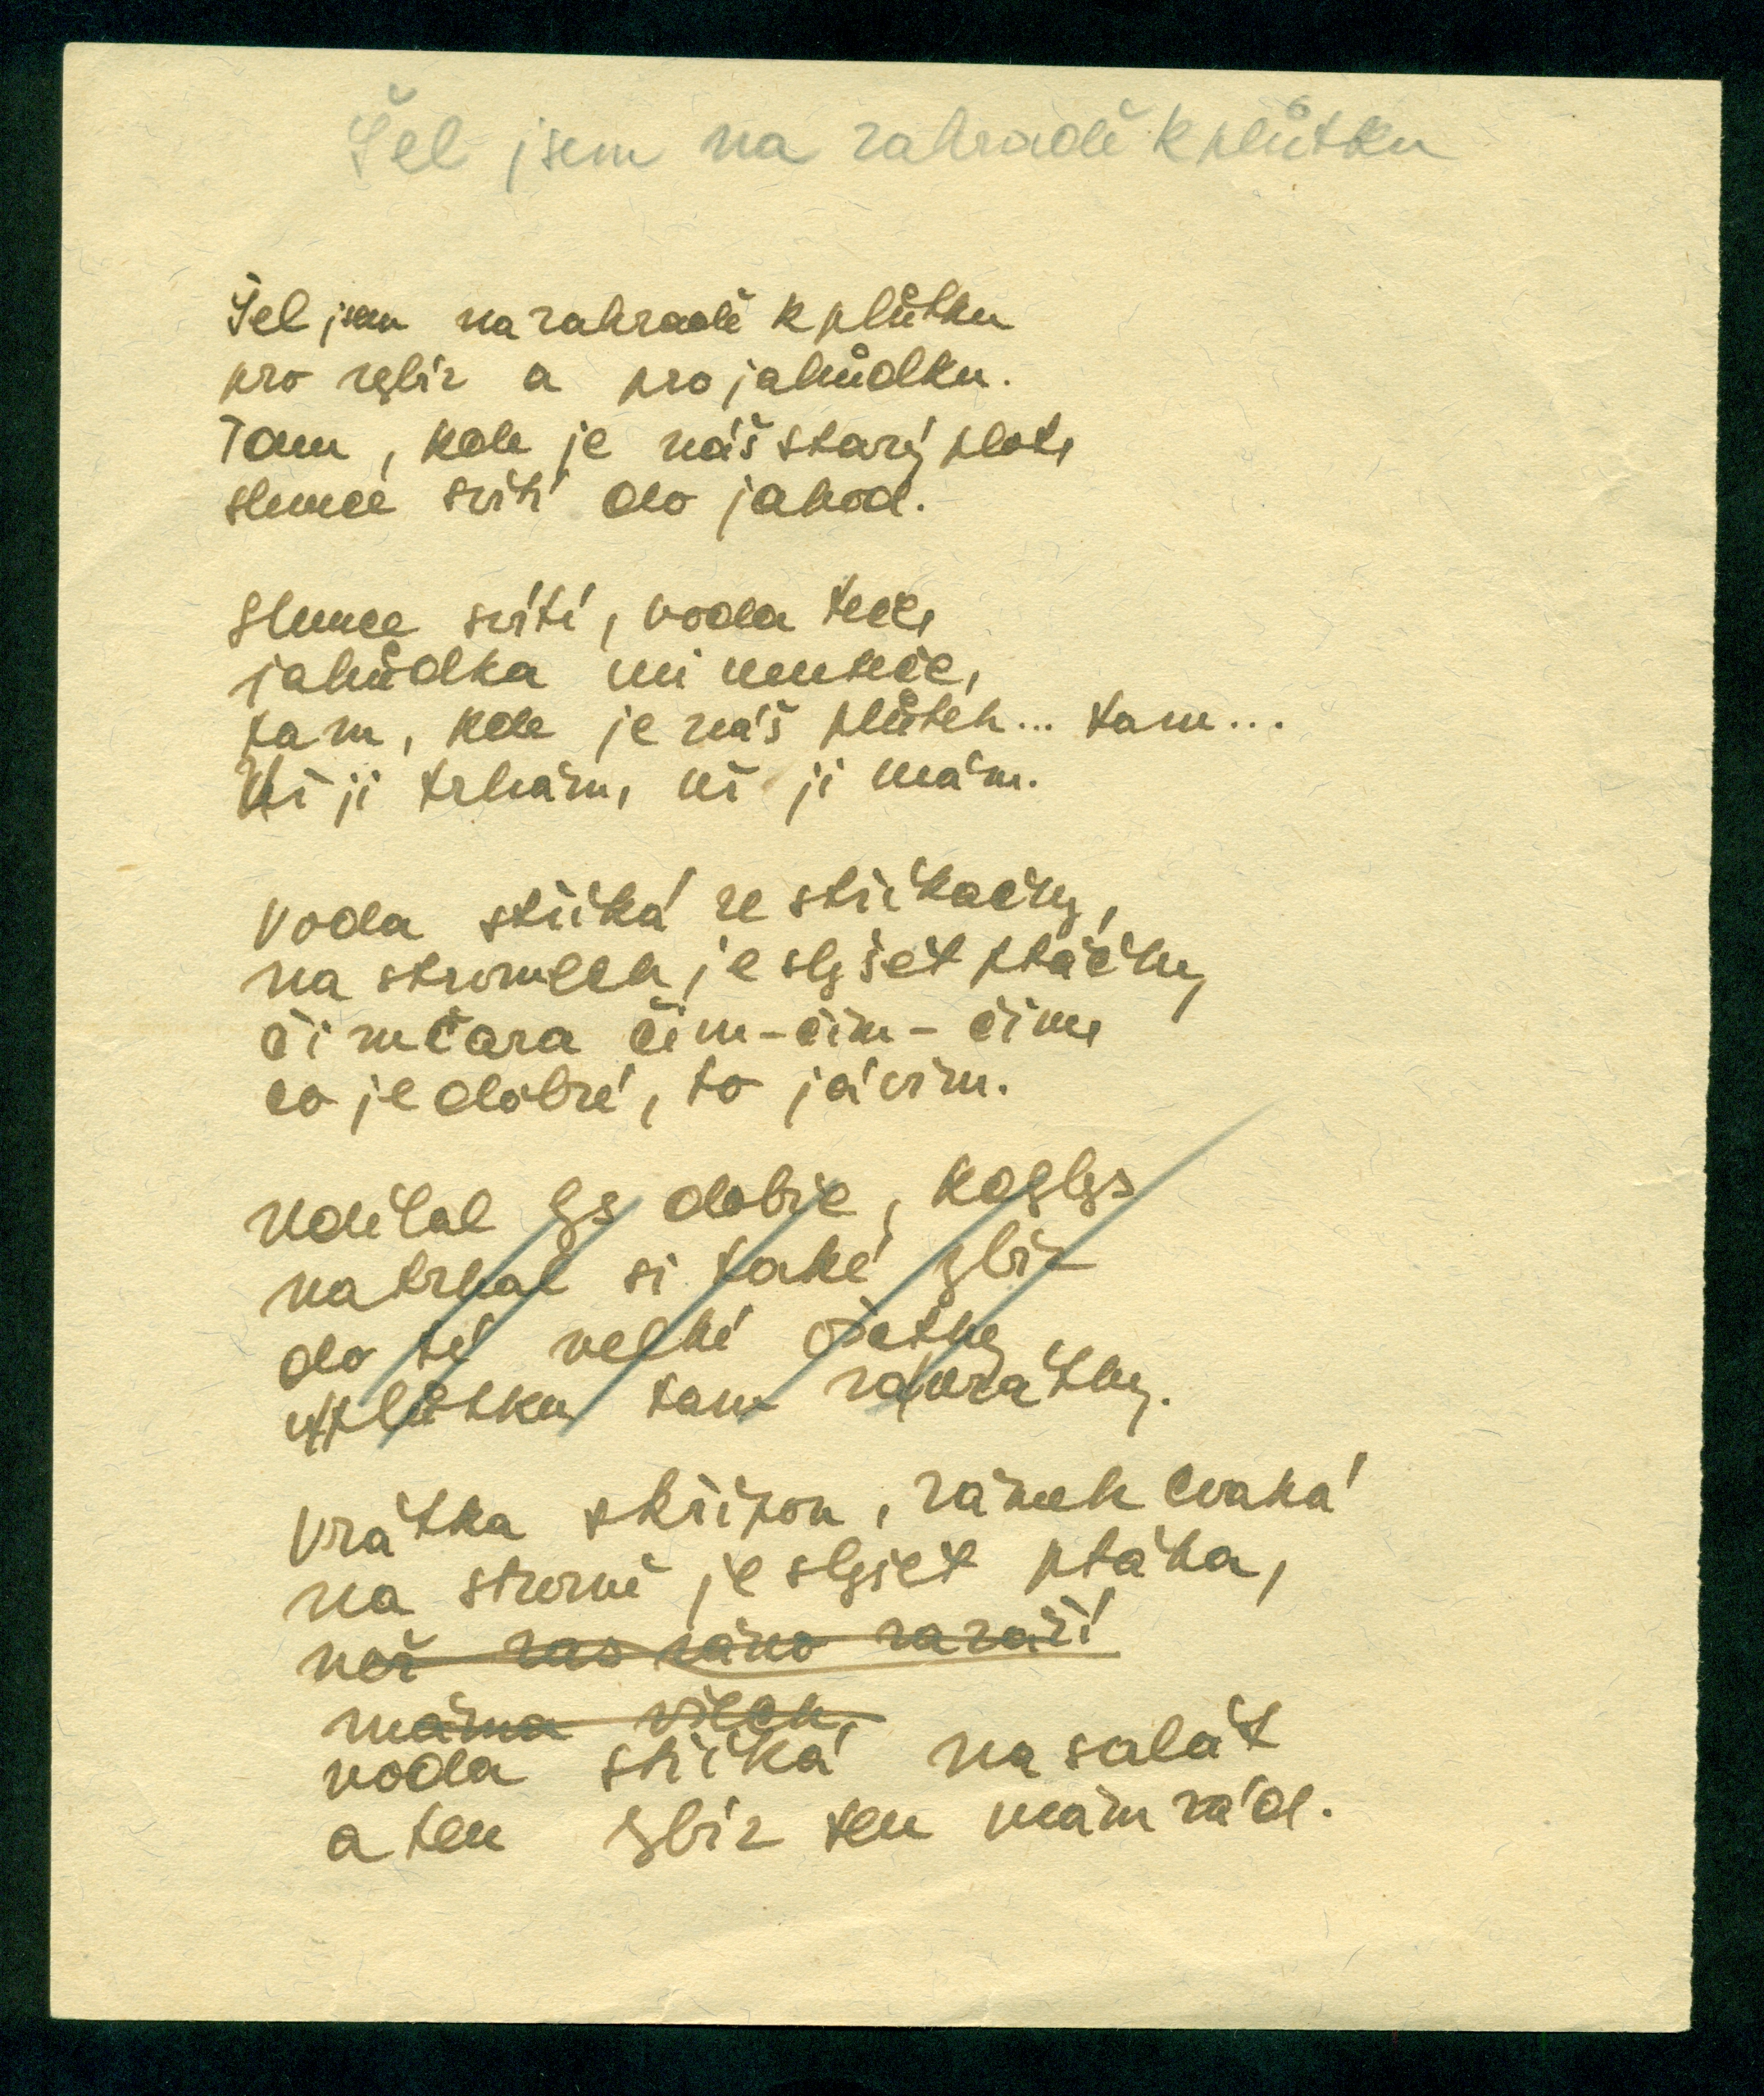 Šel jsem na zahradě k plůtku
Šel jsem na zahradě k plůtku
pro rybíz a pro jahůdku.
Tam, kde je náš starý plot,
slunce svítí do jahod.
Slunce svítí, voda teče,
jahůdka mi neuteče,
tam, kde je náš plůtek... tam...
Už ji trhám, už ji mám.
Voda stříká ze stříkačky,
na stromech je slyšet ptáčky
čimčara čim-čim-čim,
co je dobré, to já vím.
Udělal bys dobře, kdybys
natrhal si také rybíz
do té velké ošatky
u plůtku tam za vrátky.
Vrátka skřípou, zámek cvaká
na stromě je slyšet ptáka,
než zas ráno zaráží
máma všech,
voda stříká na salát
a ten rybíz ten mám rád.